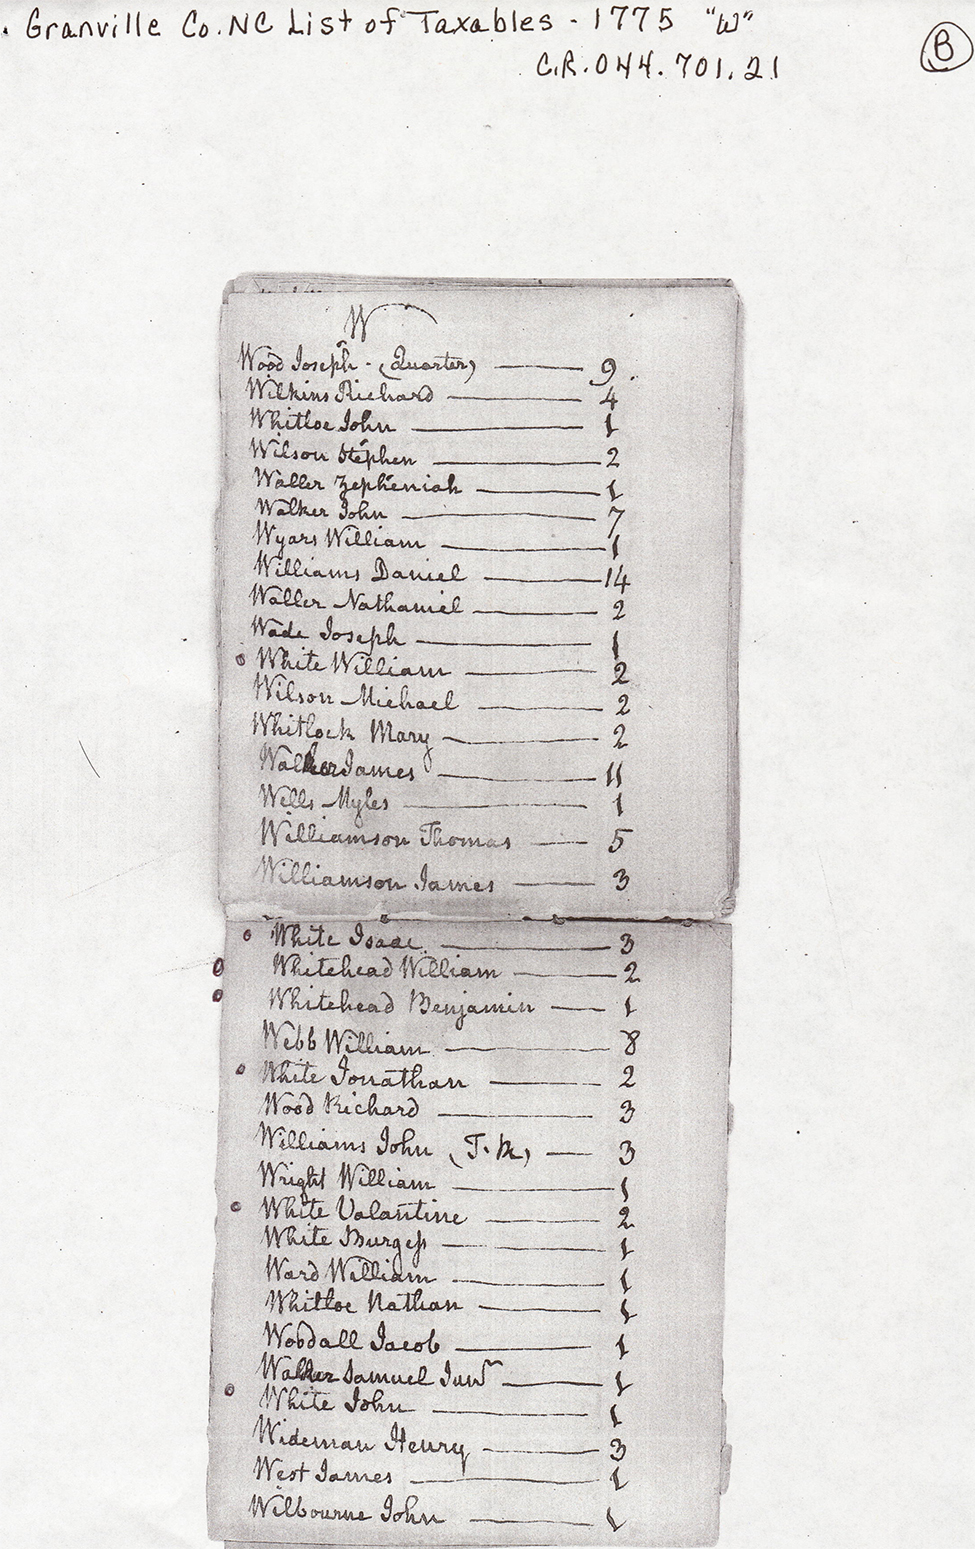 . Granville Co. NC List of Taxables - 1775 "W"
C.R. 044.701.21
B
W
Wood Joseph - (Quarter) 9
Wilkins Richard 4
Whitloe John 1
Wilson Stephen 2
Waller Zepheniah 1
Walker John 7
Wyars William 1
Williams Daniel 14
Waller Nathaniel 2
Wade Joseph 1
White William 2
Wilson Michael 2
Whitlock Mary 2
Walker James 11
Wells Myles 1
Williamson Thomas 5
Williamson James 3
White Isaac 3
Whitehead William 2
Whitehead Benjamin 1
Webb William 8
White Jonathan 2
Wood Richard 3
Williams John 3
Wright William 1
White Valantine 2
White Burgess 1
Ward William 1
Whitloe Nathan 1
Woodall Jacob 1
Samuel Junr 1
White John 1
Wideman Henry 3
West James 1
Wilbourne John 1